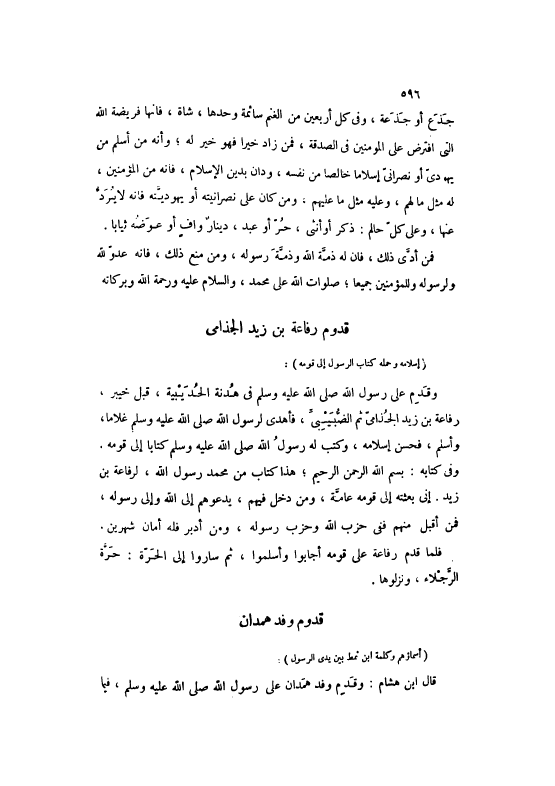 ٥٩٦
جَذَع أو جَذَعة ، وفى كل أربعين من الغنم سائمة وحدها ، شاة ، فانها فريضة الله
التى افترض على المومنين فى الصدقة ، فمن زاد خيرا فهو خير له ؛ وأنه من أسلم من
يهودىّ أو نصرانىّ إسلاما خالصا من نفسه ، ودان بدين الإسلام ، فانه من المؤمنين ،
له مثل ما لهم ، وعليه مثل ما عليهم ، ومن كان على نصرانيته أو يهوديَّته فانه لايُرَدُّ
عنها ، وعلى كلّ حالم : ذكر أو أنثى ، حُرّ أو عبد ، دينارٌ وافٍ أو عوَضُه ثيابا .
فمن أدَّى ذلك ، فان له ذمَّة الله وذمَّة رسوله ، ومن منع ذلك ، فانه عدوّ لله
ولرسوله وللمؤمنين جميعا ؛ صلوات الله على محمد ، والسلام عليه ورحمة الله وبركاته
قدوم رفاعة بن زيد الجذامى
( إسلامه وحمله كتاب الرسول إلى قومه ) :
وقَدِم على رسول الله صلى الله عليه وسلم فى هُدنة الحُدَيْبية ، قبل خيبر ،
رفاعة بن زيد الجُذامىّ ثم الضُّبَيْبِىّ ، فأهدى لرسول الله صلى الله عليه وسلم غلاما،
وأسلم ، فحسن إسلامه ، وكتب له رسولُ الله صلى الله عليه وسلم كتابا إلى قومه .
وفى كتابه : بسم الله الرحمن الرحيم ؛ هذا كتاب من محمد رسول الله ، لرفاعة بن
زيد . إنى بعثته إلى قومه عامَّة ، ومن دخل فيهم ، يدعوهم إلى الله وإلى رسوله ،
فمن أقبل منهم ففى حزب الله وحزب رسوله ، ومن أدبر فله أمان شهرين .
فلما قدم رفاعة على قومه أجابوا وأسلموا ، ثم ساروا إلى الحَرّة : حَرَّة
الرَّجْلاء ، ونزلوها .
قدوم وفد همدان
( أسماؤهم وكلمة ابن نمط بين يدى الرسول ) :
قال ابن هشام : وقَدِم وفد هَمْدان على رسول الله صلى الله عليه وسلم ، فيما